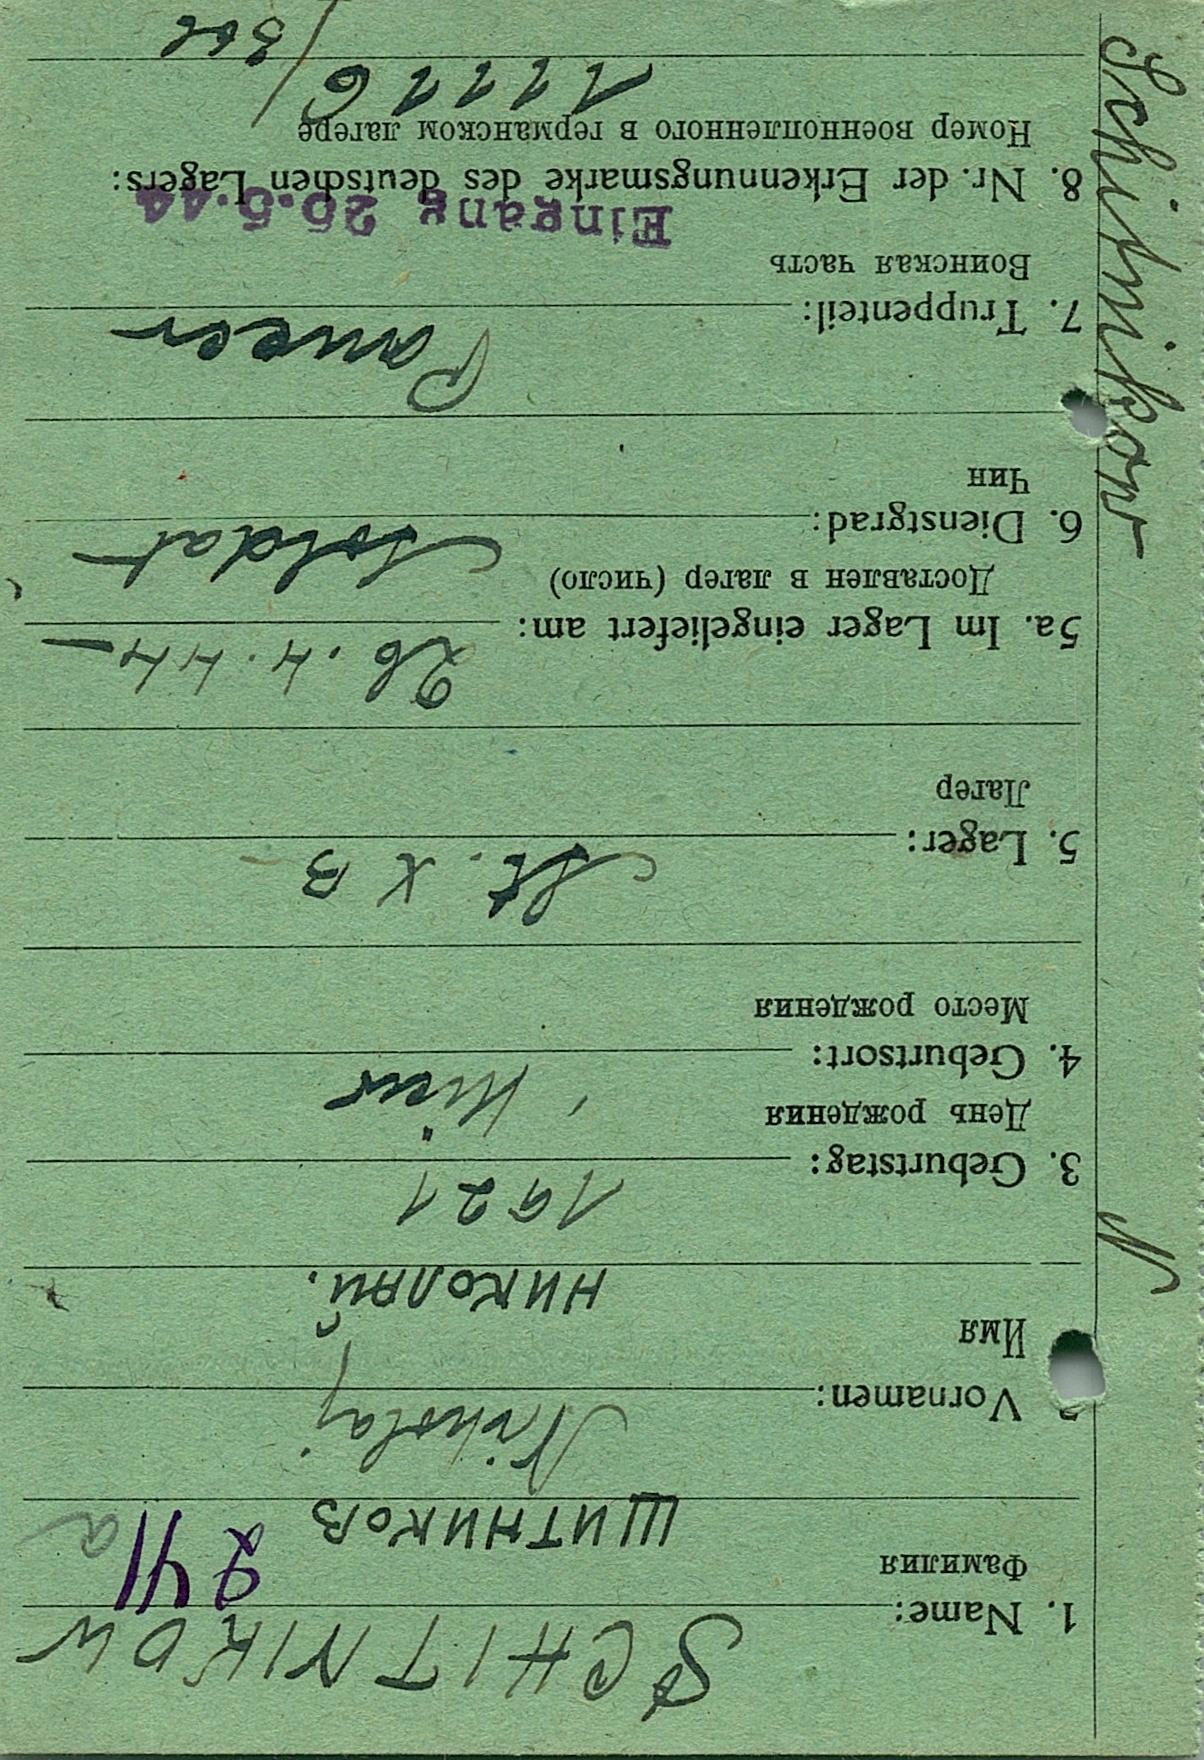 Schitnikow N
SCHITNIKOW
1. Name:
Фамилия
241 a
ЩИТНИКОВ
Nikolaj
Vornamen:
Имя
НИКОЛАЙ.
1921
3. Geburtstag:
День рождения
Kiew
4. Geburtsort:
Место рождения
St. X B
5. Lager:
Лагер
26.4.44
5a. Im Lager eingeliefert am:
Доставлен в лагер (число)
Soldat
6. Dienstgrad:
Чин
7. Truppenteil:
Воинская часть
Eingang 26.5.44
8. Nr. der Erkennungsmarke des deutschen Lagers:
Номер военнопленного в германском лагере
11116/